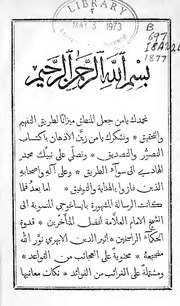 LIBRARY
MAY 3 1973
B
697
I8A224
1877
بسم الله الرحمن الرحيم
نحمدك يا من جعل المنطق ميزانا لطريق التفهيم
والتحقيق * ونشكرك يا من زين الاذهان باكتساب
التصور والتصديق * ونصلي على نبيك محمد
الهادي الى سواء الطريق * وعلى آله واصحابه
الذين فازوا بالهداية والتوفيق * اما بعد فلما
كانت الرسالة المشهورة بايساغوجي المنسوبة الى
الشيخ الامام العلامة افضل المتأخرين * قدوة
الحكماء الراسخين * اثير الدين الابهري نور الله
مضجعه * محتوية على العجائب من القواعد *
ومشتملة على الغرائب من الفوائد * نكات معانيها